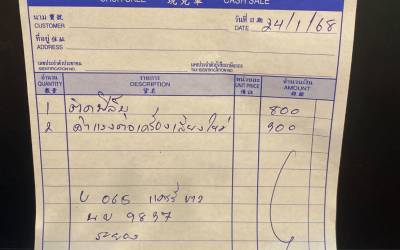 CASH SALE 現兑單 CASH SALE
นาม 寶號
CUSTOMER
วันที่ 日期 24/1/68
DATE
ที่อยู่ 住址
ADDRESS
เลขประจำตัวประชาชน
เลขประจำตัวผู้เสียภาษีอากร
จำนวน รายการ หน่วยละ จำนวนเงิน
QUANTITY DESCRIPTION UNIT PRICE AMOUNT
數量 貨名 價錢 銀碼
1 800
2 ค่าแรงต่อเครื่องเสียงใหม่ 900
บ 065 แครี่ ขาว
9837
ระยอง